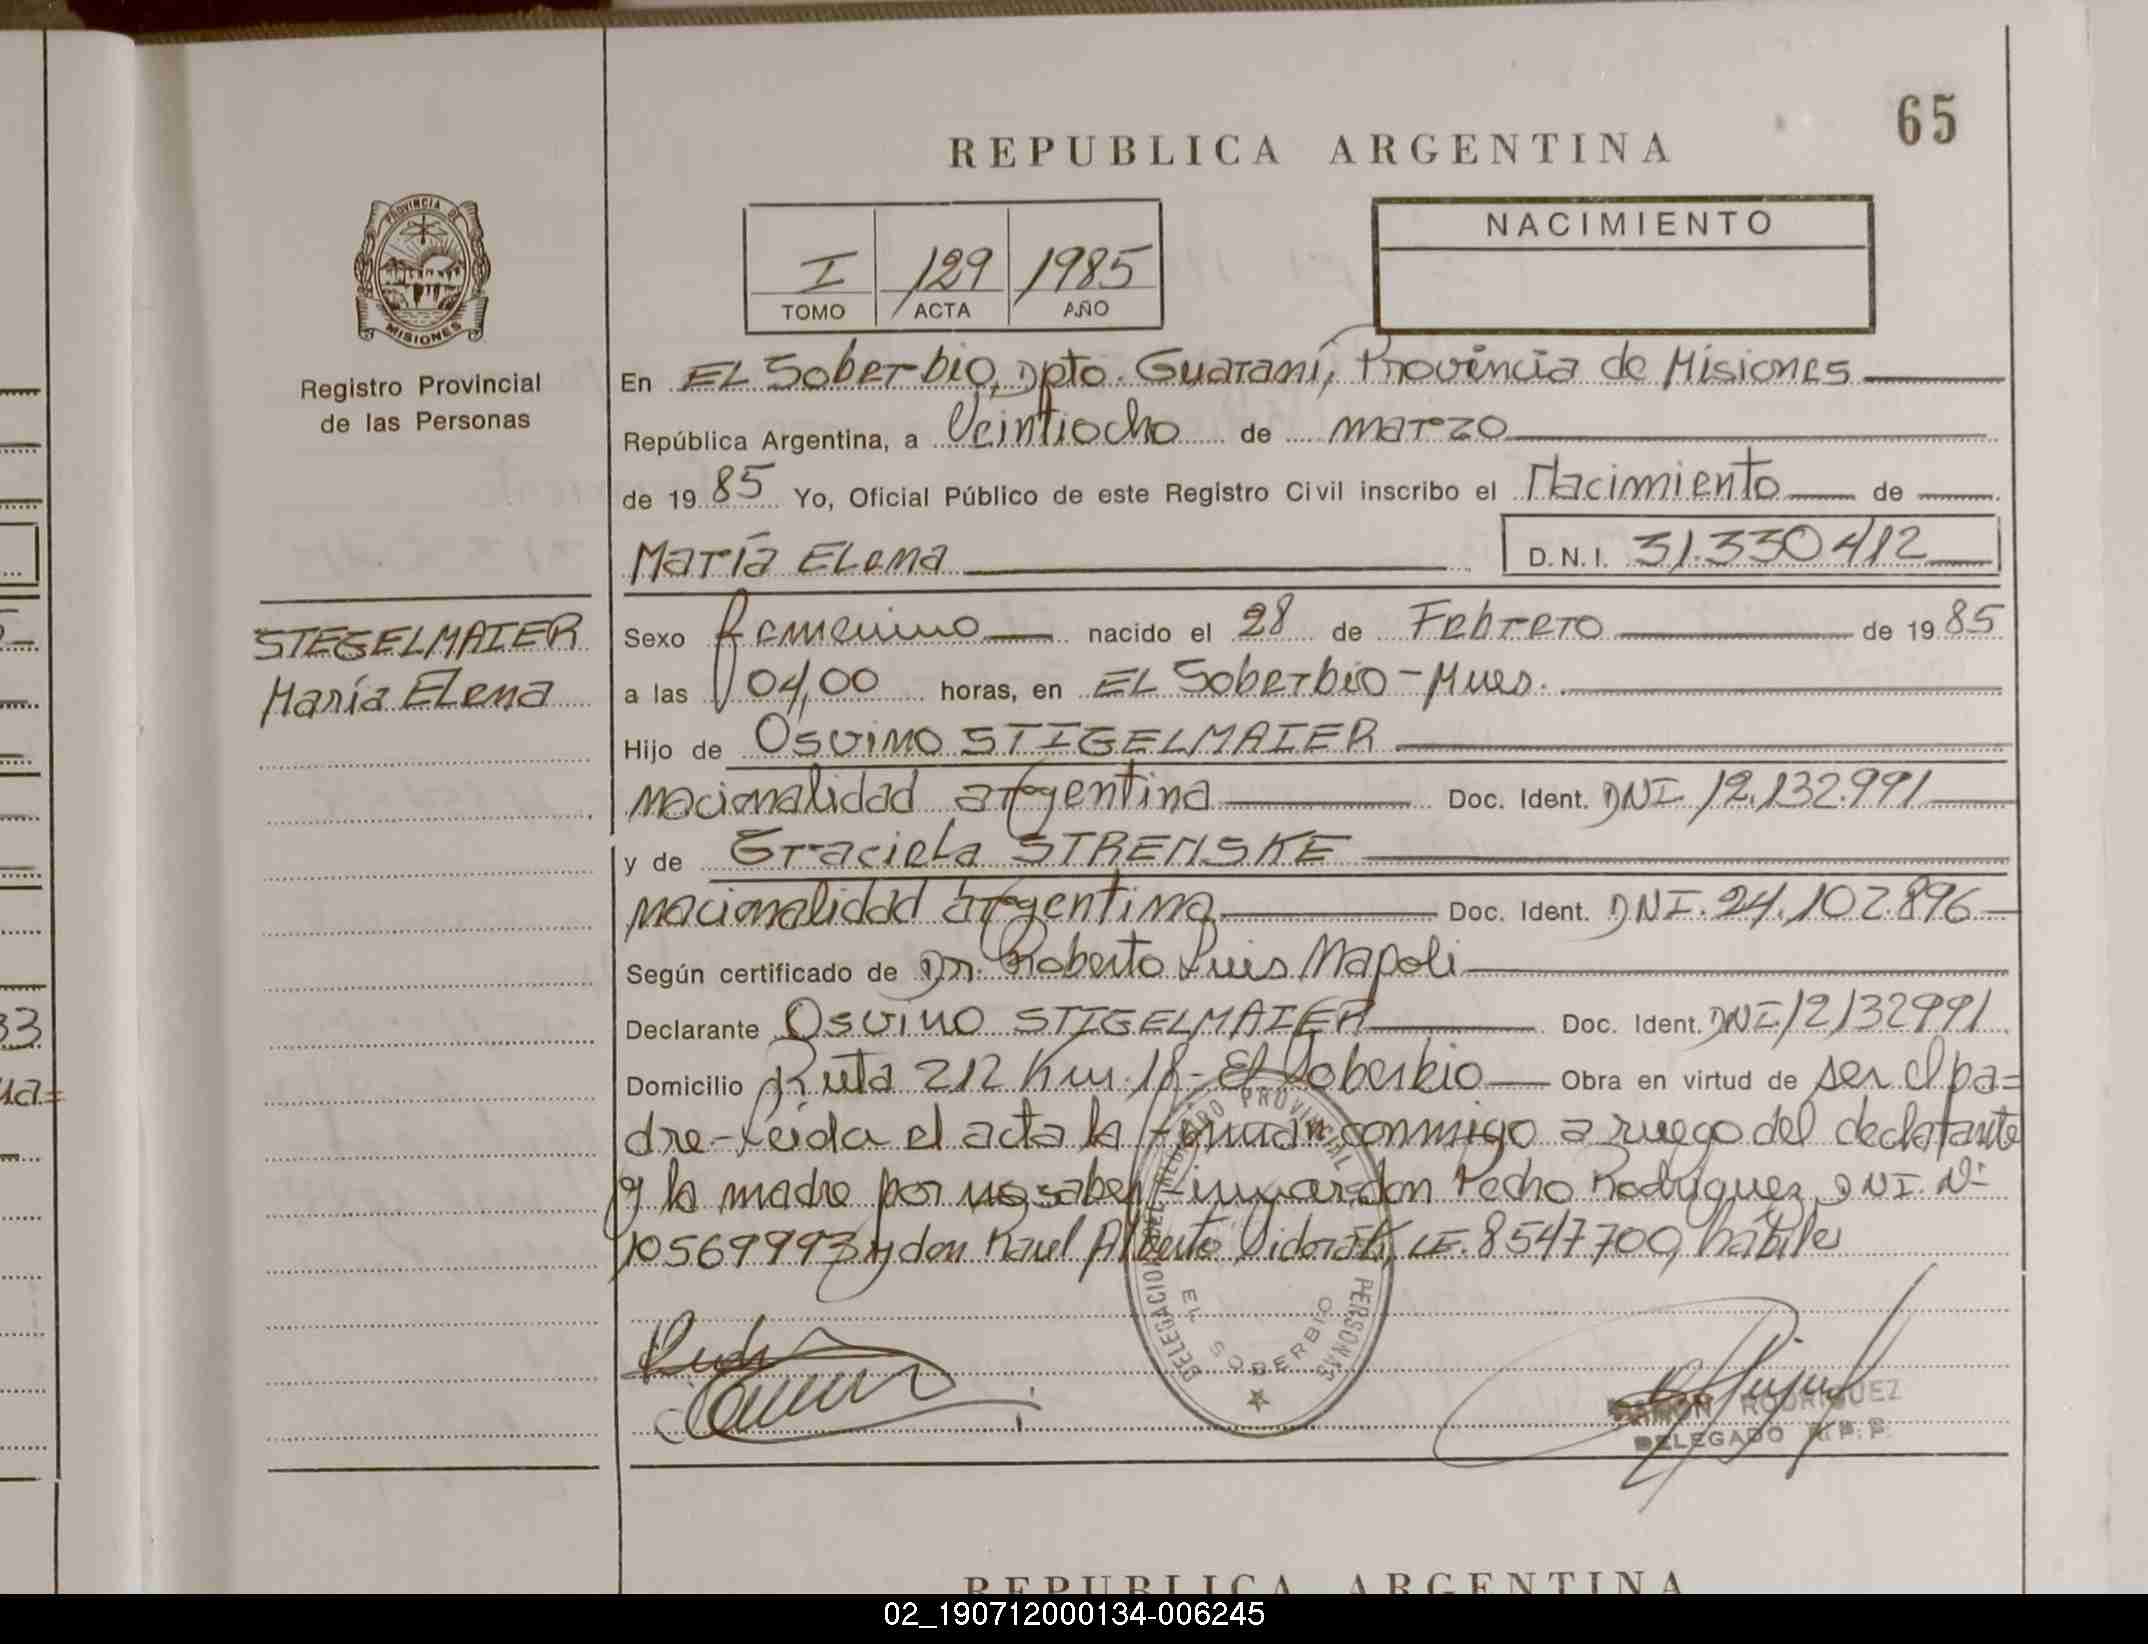 65
REPUBLICA ARGENTINA
NACIMIENTO
I 129 1985
TOMO ACTA AÑO
PROVINCIA DE
MISIONES
Registro Provincial
de las Personas
STEGELMAIER
María Elena
En EL Soberbio, Dpto. Guaraní, Provincia de Misiones
República Argentina, a Veintiocho de marzo
de 19 85 Yo, Oficial Público de este Registro Civil inscribo el Nacimiento de
María ELena D.N.I. 31.330412
Sexo femenino nacido el 28 de Febrero de 19 85
a las 04,00 horas, en EL Soberbio-Mnes.
Hijo de Osvino STIGELMAIER
nacionalidad argentina Doc. Ident. DNI 12.132.991
y de Graciela STRENSKE
nacionalidad argentina Doc. Ident. DNI. 24.102.896
Según certificado de Dr. Roberto Luis Napoli
Declarante Osvino STIGELMAIER Doc. Ident. DNI 12132991
Domicilio Ruta 212 Km. 18- El Soberbio Obra en virtud de ser el pa=
dre-Leída el acta la firman conmigo a ruego del declarante
y la madre por no saber firmar don Pedro Rodriguez DNI. Nº
10569993 y don Raul Alberto LE. 8547700, hábiles
DELEGACION DEL REGISTRO PROVINCIAL PERSONAS
EL SOBERBIO
RAMON RODRIGUEZ
DELEGADO R.P.P.
REPUBLICA ARGENTINA
02_190712000134-006245